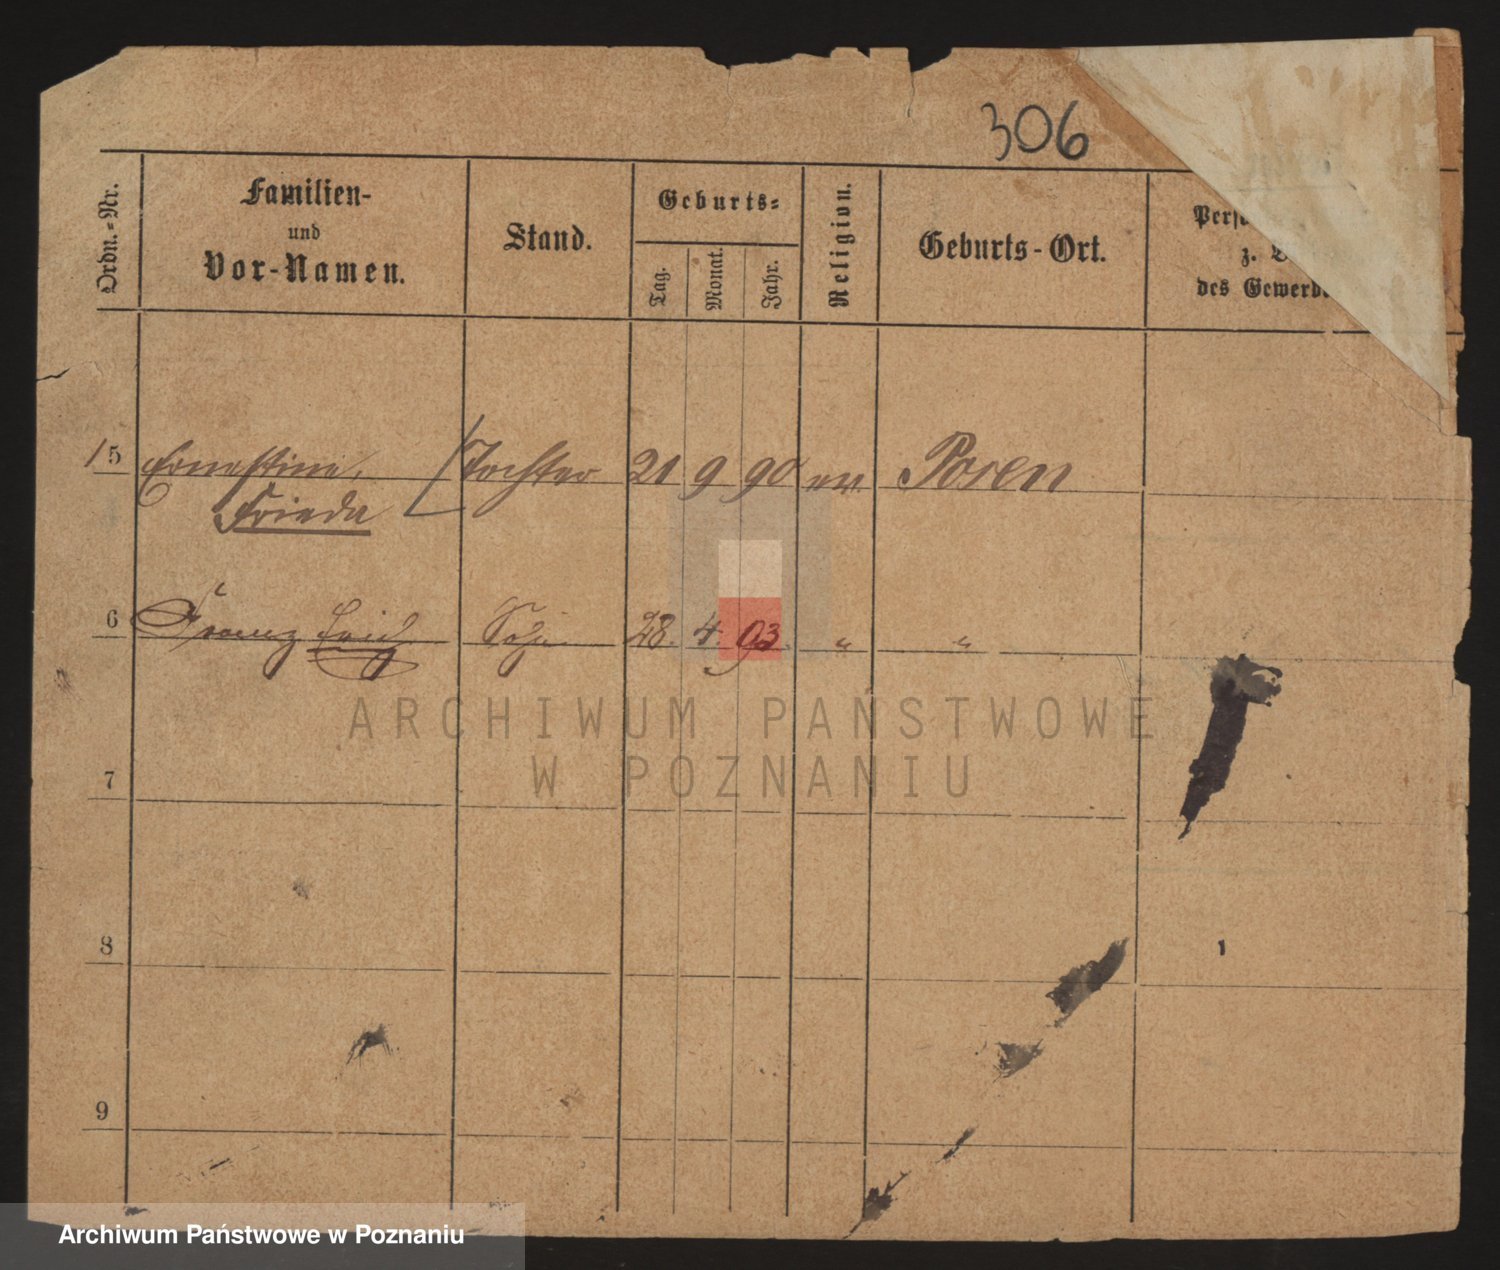 306
Ordn.-Nr.
Familien-
und
Vor-Namen.
Stand.
Geburts-
Tag.
Monat.
Jahr.
Religion.
Geburts-Ort.
Perso
z.
des Gewerb
15 Ernestine, Tochter 21 9 90 ev. Posen
Frieda
6 Franz Erich Sohn 28. 4. 93 " "
ARCHIWUM PAŃSTWOWE
W POZNANIU
7
8
9
Archiwum Państwowe w Poznaniu